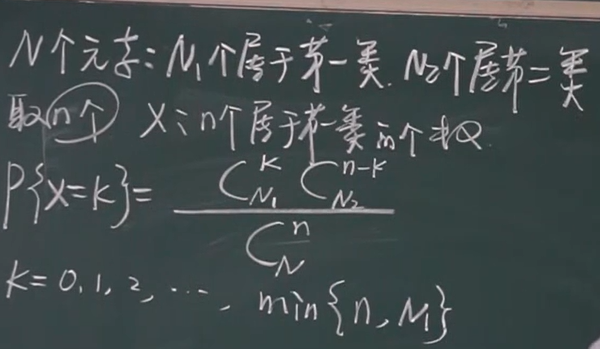 N个元素: N₁个属于第一类. N₂个属第二类
取n个 X: n个属于第一类的个数.
P{X=K}= \frac{C_{N_1}^{K} C_{N_2}^{n-K}}{C_N^n}
K=0,1,2,⋯, min{n, N₁}